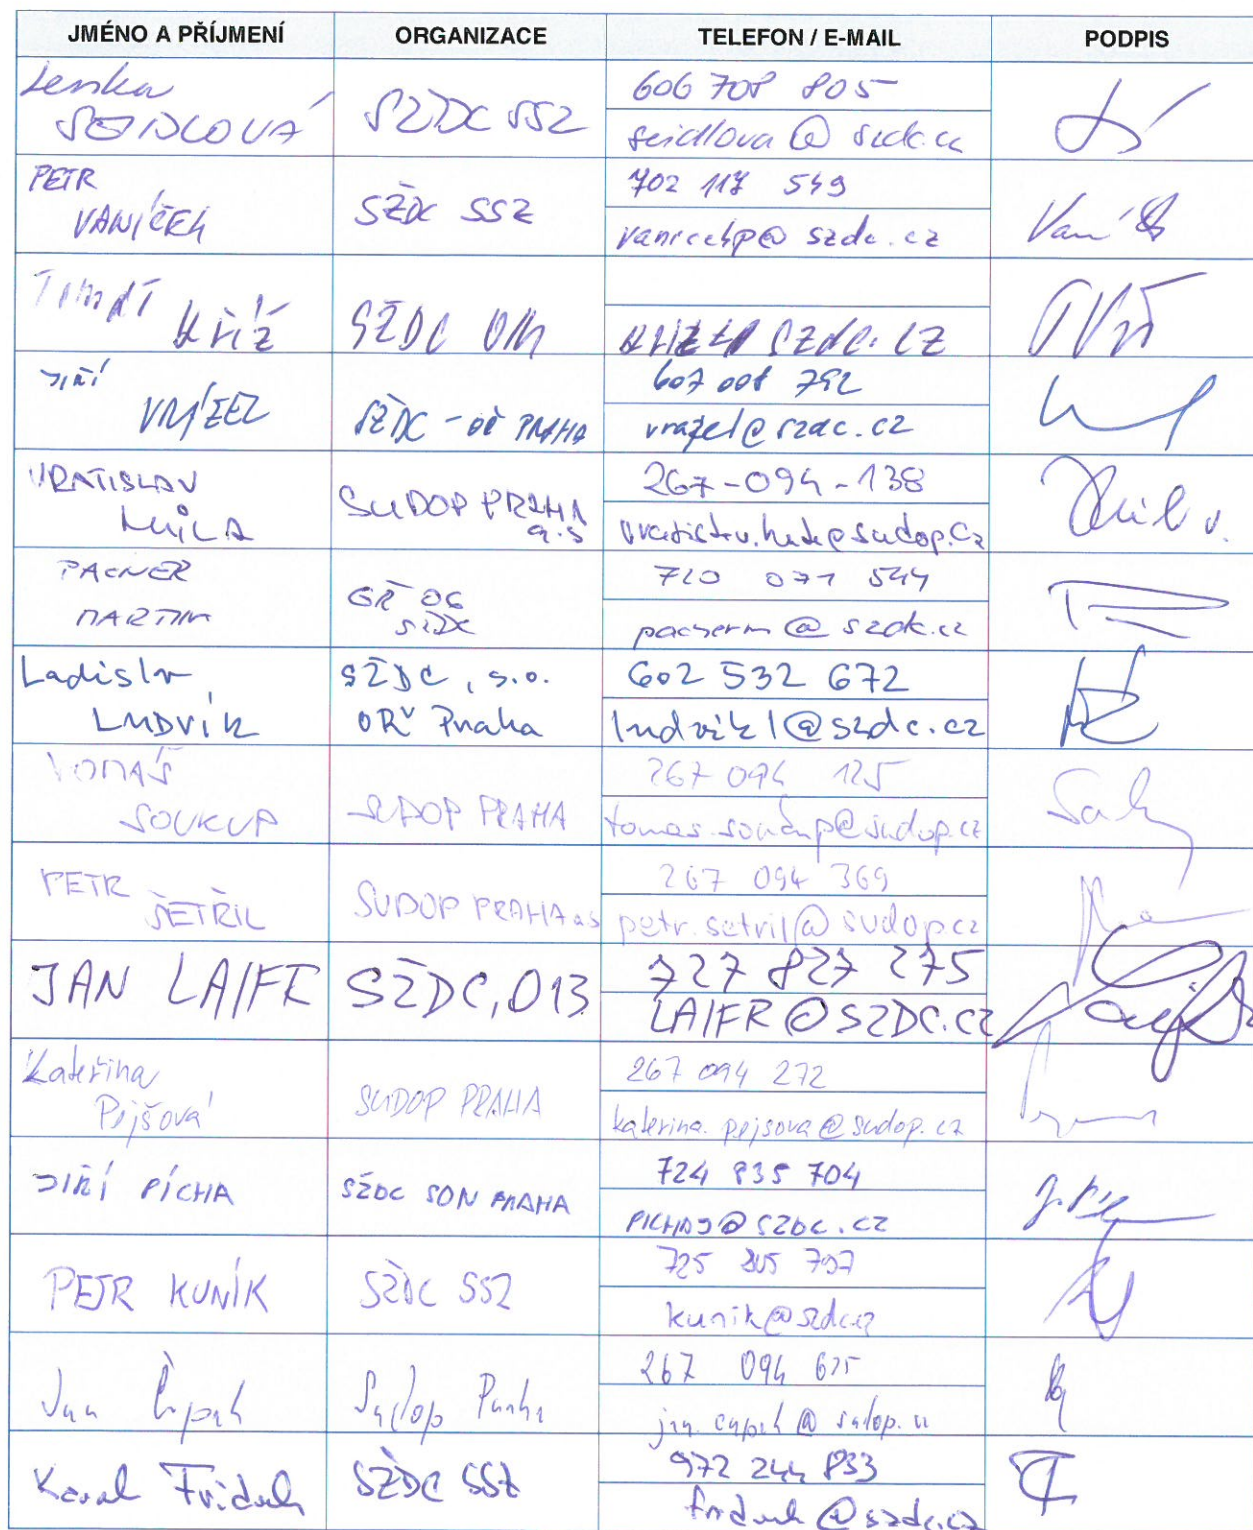 JMÉNO A PŘÍJMENÍ ORGANIZACE TELEFON / E-MAIL PODPIS
Lenka
SEIDLOVÁ SŽDC SSZ 606 708 805
seidlova@szdc.cz
PETR
VANÍČEK SŽDC SSZ 702 117 549
vanicekp@szdc.cz
Timot
Kříž SŽDC
SZdC.CZ
JIŘÍ
VRAŽEL SŽDC - OŘ PRAHA 607 008 792
vrazel@szdc.cz
VRATISLAV
SUDOP PRAHA
a.s 267-094-138
PACNER
MARTIN GŘ O6
SŽDC 720 071 544
pacnerm@szdc.cz
Ladislav
LUDVÍK SŽDC, s.o.
OŘ Praha 602 532 672
ludvikl@szdc.cz
TOMÁŠ
SOUKUP SUDOP PRAHA 267 094 125
tomas.soukup@sudop.cz
PETR
ŠETŘIL SUDOP PRAHA as 267 094 369
petr.setril@sudop.cz
JAN LAIFR SŽDC, O13 727 827 275
LAIFR@SZDC.CZ
Kateřina
Pejšová SUDOP PRAHA 267 094 272
katerina.pejsova@sudop.cz
JIŘÍ PÍCHA SŽDC SON PRAHA 724 835 704
PICHAJ@SZDC.CZ
PETR KUNÍK SŽDC SSZ 725 805 707
kunik@szdc.cz
Jan Sudop Praha 267 094 625
Karel Fridrich SŽDC SSZ 972 244 833
@szdc.cz